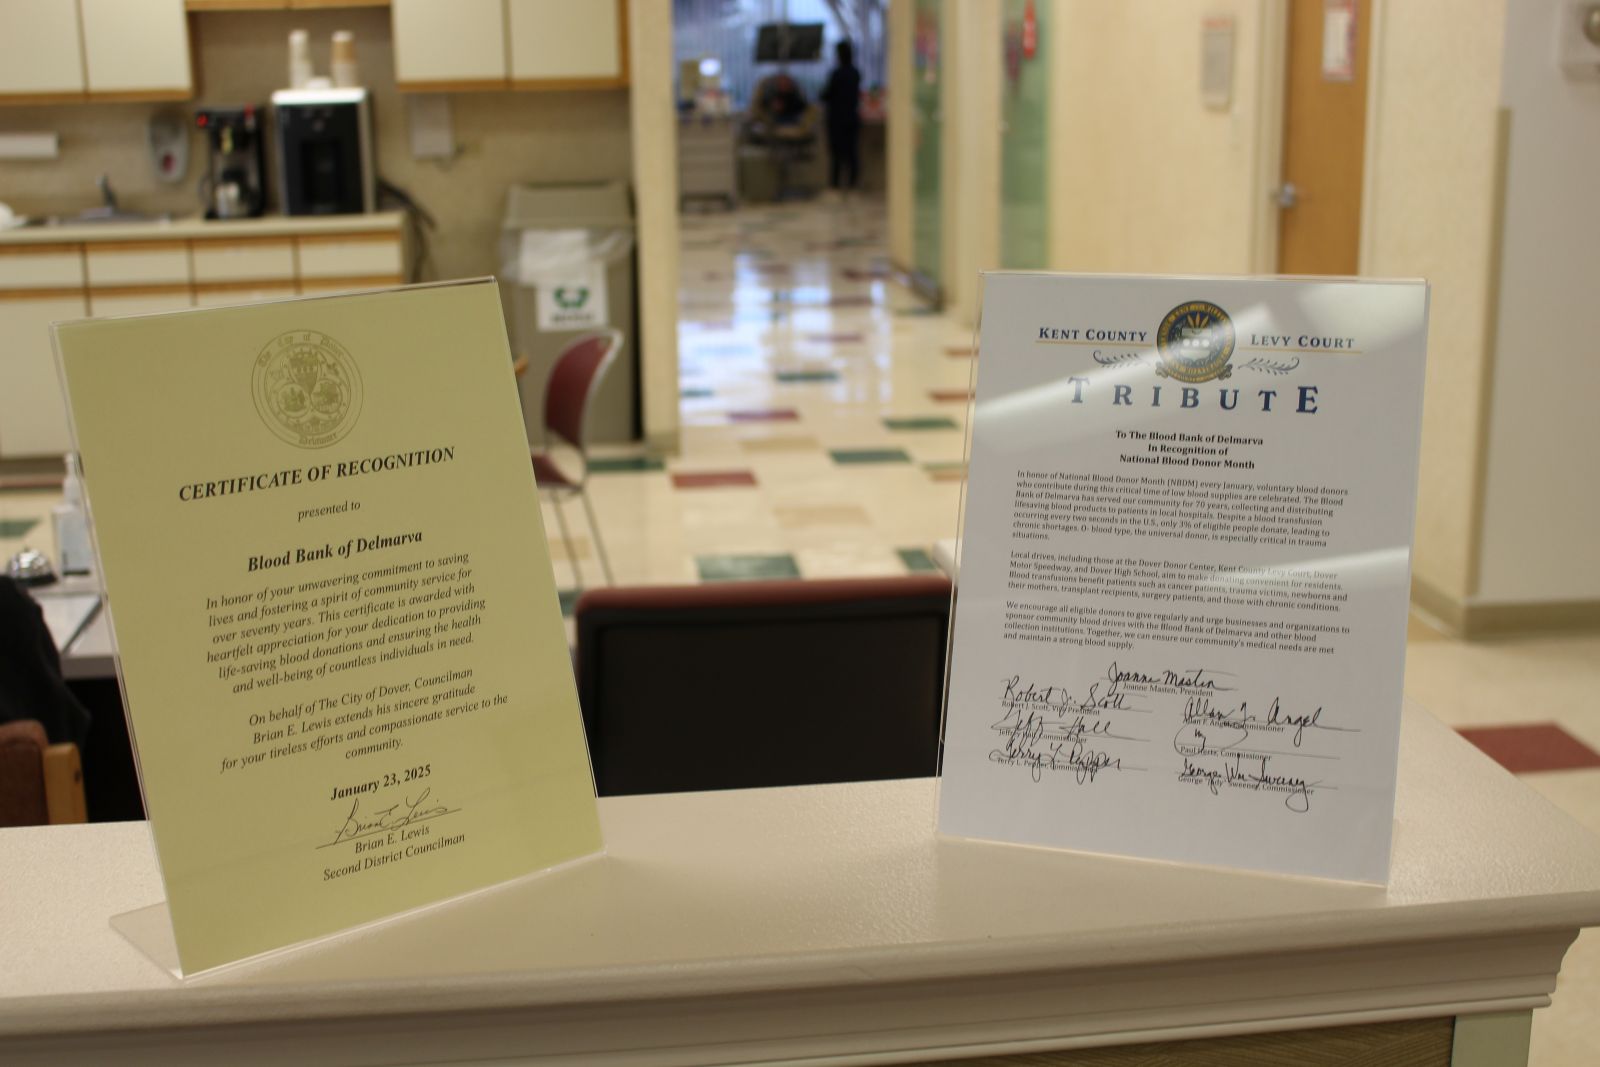 The City of Dover
Delaware
CERTIFICATE OF RECOGNITION
presented to
Blood Bank of Delmarva
In honor of your unwavering commitment to saving
lives and fostering a spirit of community service for
over seventy years. This certificate is awarded with
heartfelt appreciation for your dedication to providing
life-saving blood donations and ensuring the health
and well-being of countless individuals in need.
On behalf of The City of Dover, Councilman
Brian E. Lewis extends his sincere gratitude
for your tireless efforts and compassionate service to the
community.
January 23, 2025
Brian E. Lewis
Brian E. Lewis
Second District Councilman
KENT COUNTY LEVY COURT
TRIBUTE
To The Blood Bank of Delmarva
In Recognition of
National Blood Donor Month
In honor of National Blood Donor Month (NBDM) every January, voluntary blood donors
who contribute during this critical time of low blood supplies are celebrated. The Blood
Bank of Delmarva has served our community for 70 years, collecting and distributing
lifesaving blood products to patients in local hospitals. Despite a blood transfusion
occurring every two seconds in the U.S., only 3% of eligible people donate, leading to
chronic shortages. O- blood type, the universal donor, is especially critical in trauma
situations.
Local drives, including those at the Dover Donor Center, Kent County Levy Court, Dover
Motor Speedway, and Dover High School, aim to make donating convenient for residents.
Blood transfusions benefit patients such as cancer patients, trauma victims, newborns and
their mothers, transplant recipients, surgery patients, and those with chronic conditions.
We encourage all eligible donors to give regularly and urge businesses and organizations to
sponsor community blood drives with the Blood Bank of Delmarva and other blood
collection institutions. Together, we can ensure our community's medical needs are met
and maintain a strong blood supply.
Joanne Masten
Joanne Masten, President
Robert J. Scott
Robert J. Scott, Vice President
Allan F. Angel
Allan F. Angel, Commissioner
Jeff Hall
Jeffrey Hall, Commissioner
Paul Hertz, Commissioner
Terry L. Pepper
Terry L. Pepper, Commissioner
George Wm Sweeney
George "Jody" Sweeney, Commissioner